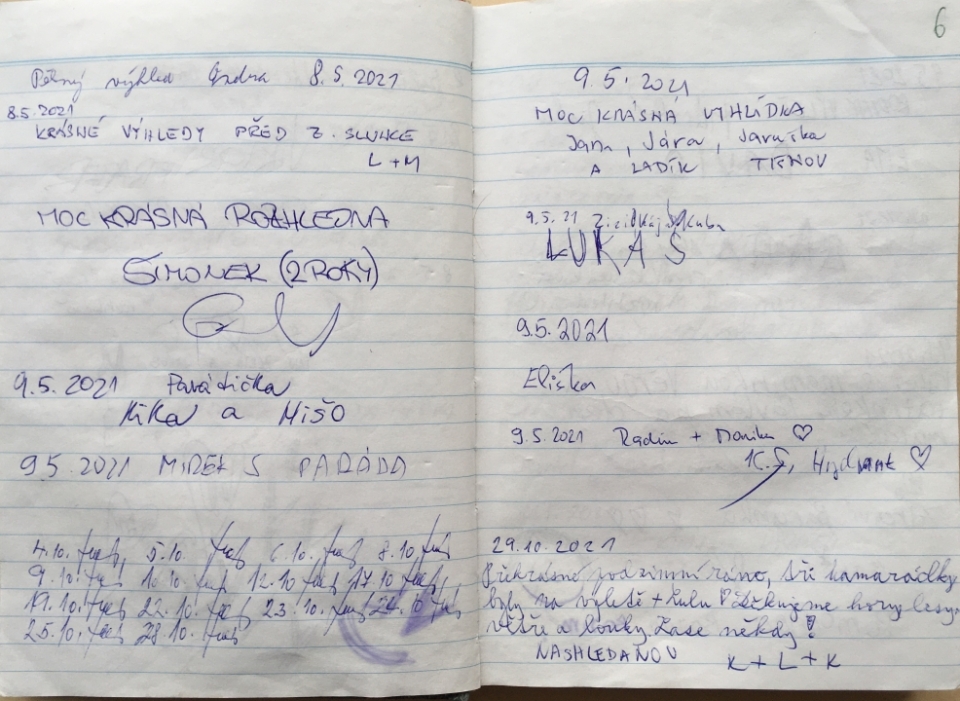 Pěkný výhled Ondra 8.5.2021
8.5.2021
KRÁSNÉ VÝHLEDY PŘED Z. SLUNCE
L+M
MOC KRÁSNÁ ROZHLEDNA
ŠIMONEK (2 ROKY)
9.5.2021 Parádička
Kika a Mišo
9.5.2021 MIREK S PARÁDA
4.10. 5.10. 6.10. 8.10.
9.10. 10.10. 12.10 17.10
19.10. 22.10. 23.10. 24.10
25.10. 28.10.
6
9.5.2021
MOC KRÁSNÁ VYHLÍDKA
Jana, Jára, Jaruška
A LADÍK TIŠNOV
9.5.21
LUKÁŠ
9.5.2021
Eliška
9.5.2021 Radim + Monika ♡
K.S, Hydrant ♡
29.10.2021
Překrásné podzimní ráno, tři kamarádky
byly na výletě + Lulu Děkujeme hory lesy
větře a louky. Zase někdy!
NASHLEDANOU K+L+K